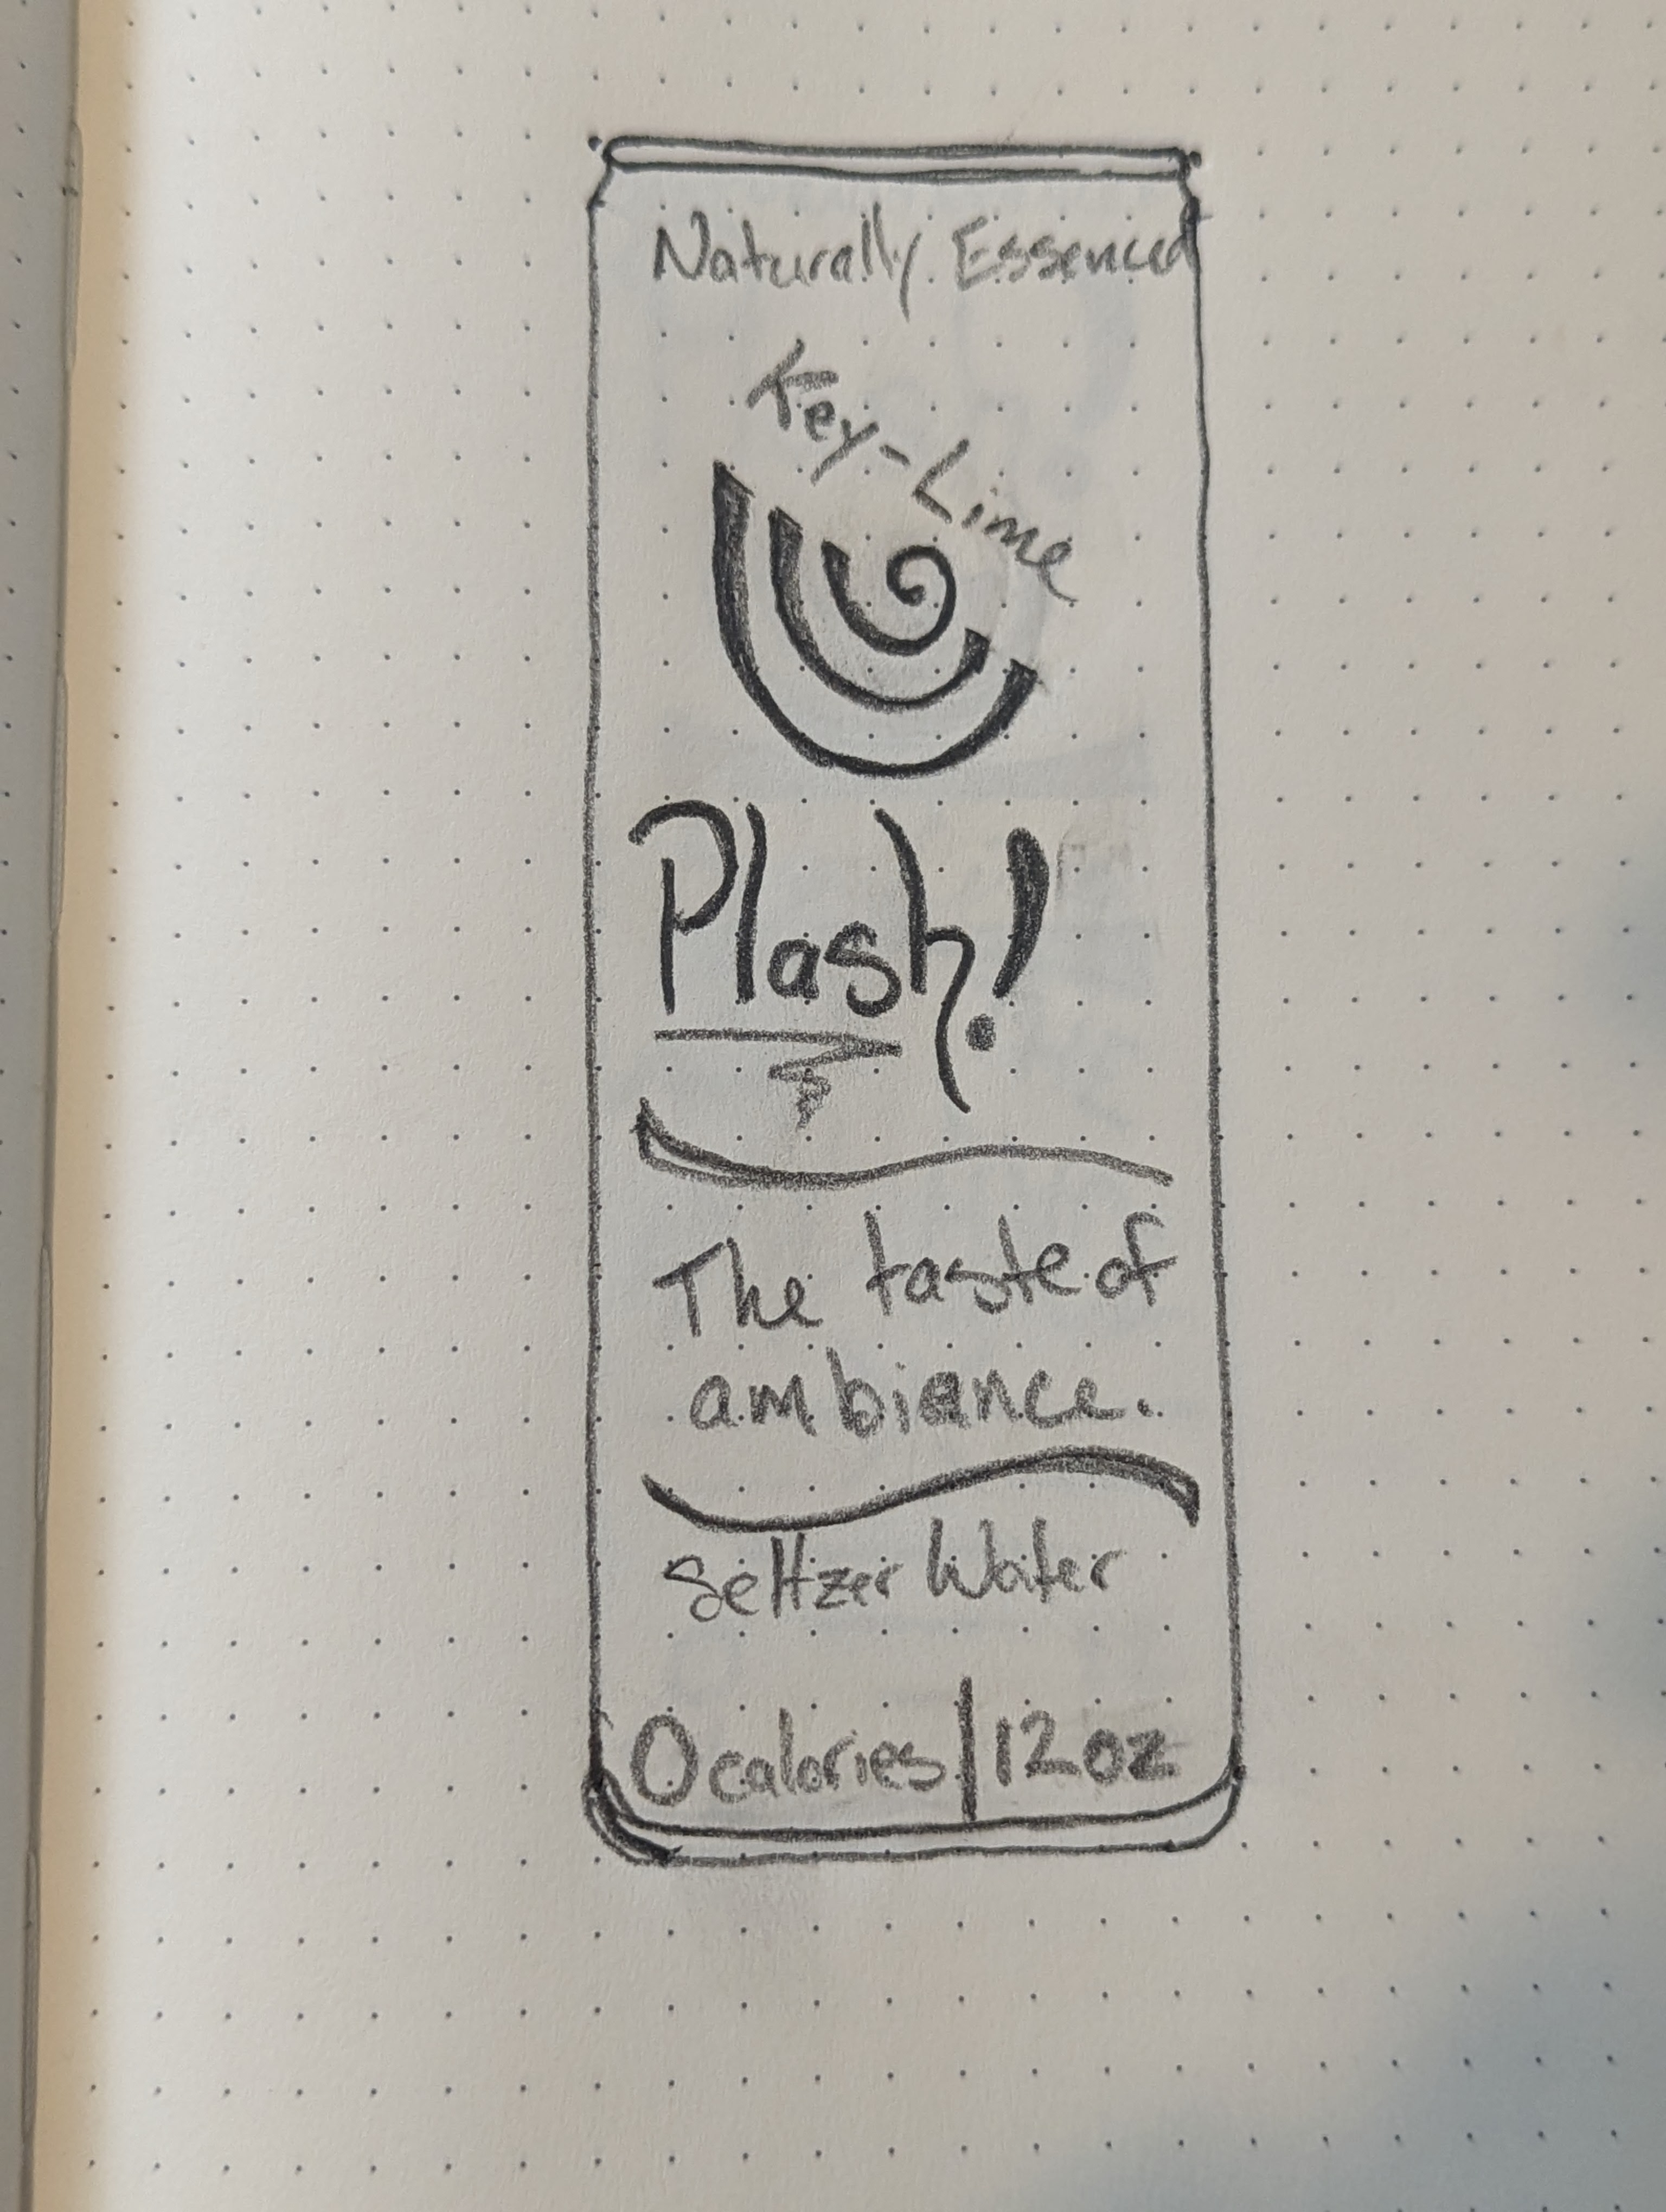 Naturally Essenced
Key-Lime
Plash!
The taste of
ambiance.
Seltzer Water
0 calories | 12 oz